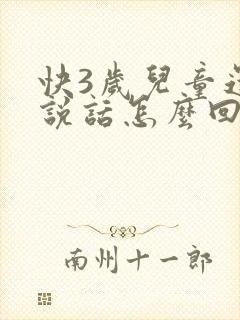 快3歲兒童還
說話怎麼回
南州十一郎